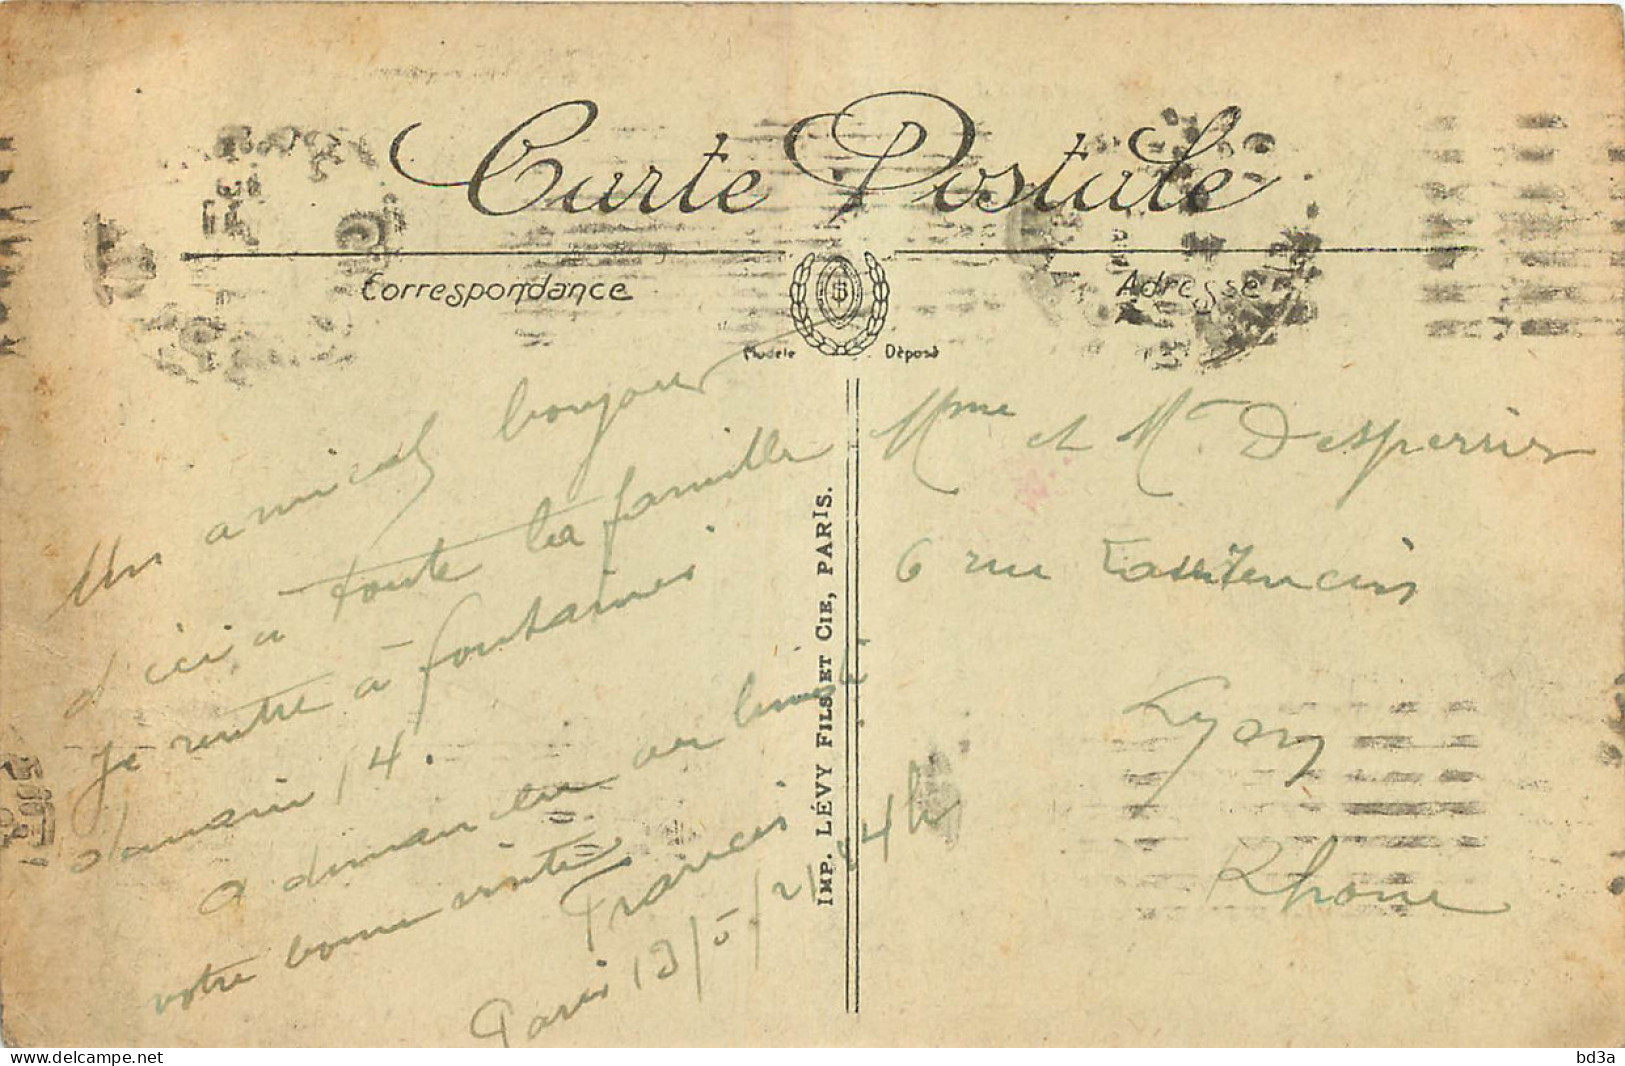 Carte Postale
Correspondance
Adresse
Modèle Déposé
Un amical bonjour
d'ici à toute la famille
je rentre à fontaines
demain 14.
a demain en
votre bonne visite
Francis
Paris 13/5/21 24h
IMP. LÉVY FILS ET CIE, PARIS.
Mme et Mr Desperrier
6 rue
Lyon
Rhone
delcampe.net
bd3a